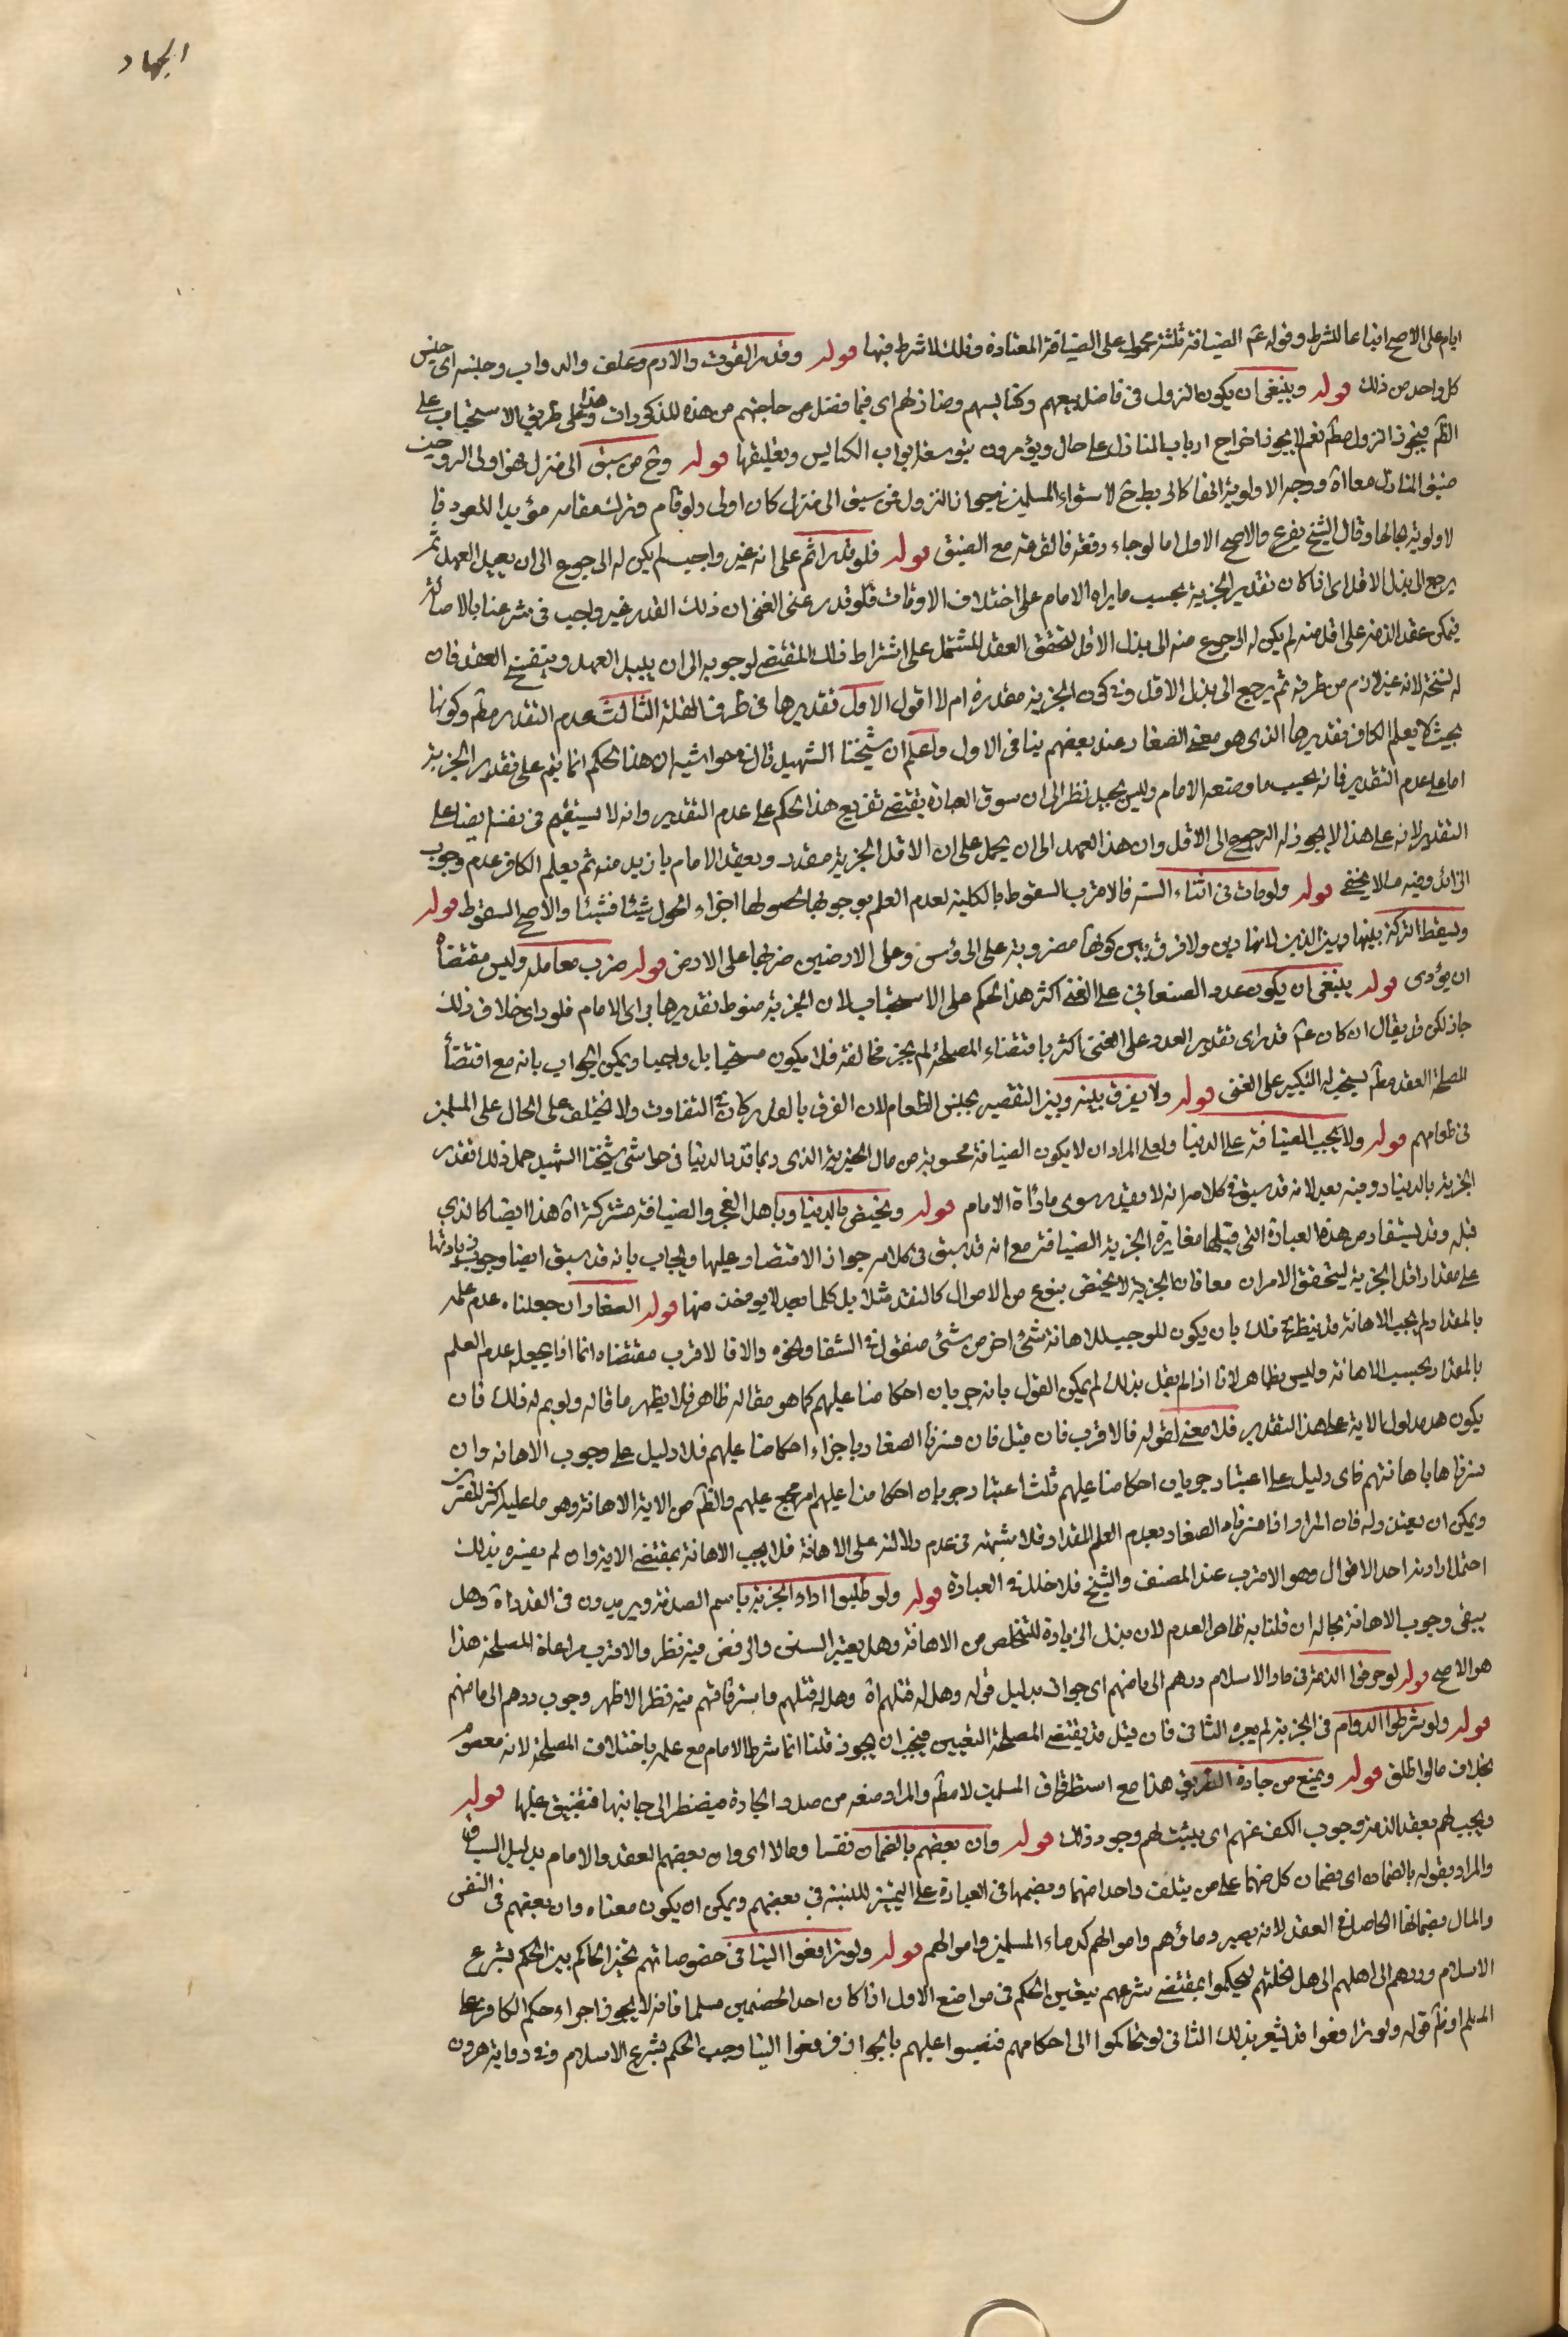 الجهاد
ايام على الاصح اتباعا للشرط وقوله عم الضيافة ثلثة محمول على الضيافة المعتادة وتلك لا شرط فيها قوله وقدر القوت والادم وعلف والدواب وجنسه اى جنس
كل واحد من ذلك قوله وينبغى ان يكون النزول فى فاضل بيعهم وكنايسهم ومنازلهم اى فيما فضل عن حاجتهم من هذه المذكورات وهذا على طريق الاستحباب على
الظ فيجوز النزول مطم نعم لا يجوز اخراج ارباب المنازل على حال ويؤمرون بتوسعة ابواب الكنايس وتعليقها قوله وخ من سبق الى منزل فهو اولى الى وحيث
ضيق المنازل معاا ووجه الاولوية انها كالى بطح لاستواء المسلمين فيها النزول فمن سبق الى منزل كان اولى ولو قام وترك مقامه مؤيدا للعود فا
لاولوية بحالها وقال الشيخ يقرع والاصح الاول اما لو جاء دفعة فالقرعة مع الضيق قوله فلو قدر اثم على انه غير واجب لم يكن له الرجوع الى ان يبدل العهد ثم
يرجع الى بذل الاقل اى اذا كان تقدير الجزية بحسب ما يراه الامام على اختلاف الاوقات فلو قدر عنى الغنى ان ذلك القدر غير واجب فى شرعنا بالاصالة
فيمكن عقد الذمة على اقل منه لم يكن له الرجوع منه الى بذل الاقل لتحقق العقد المشتمل على اشتراط ذلك المقتضى لوجوبه الى ان يبدل العهد وينفسخ العقد فان
له لسنخه لانه غير لازم من طرفه ثم يرجع الى بذل الاقل وفى كون الجزية مقدرة ام لا اقول الاول تقديرها فى طرف القلة الثالث عدم التقدير مطم وكونها
بحيث لا يعلم الكافر مقديرها الذى هو معنى الصغار عند بعضهم ينافى الاول واعلم ان شيخنا الشهيد قال فى حواشيه ان هذا الحكم انما يتم على تقدير الجزية
اما على عدم التقدير فانه بحسب ما وضعه الامام وليس بجيد نظر الى ان سوق العبارة يقتضى تفريع هذا الحكم على عدم التقدير وانه لا يستقيم فى نفسه ايضا على
التقدير لانه على هذا لا يجوز له الرجوع الى الاقل وان هذا العهد الى ان يحمل على ان الاقل الجزية مقدر ويعقد الامام بازيد منه ثم يعلم الكافر عدم وجوب
الزائد وفيه ما لا يخفى قوله ولو مات فى اثناء السنة فالاقرب السقوط بالكلية لعدم العلم بوجوبها لحصولها اجزاء الحول شيئا فشيئا والاصح السقوط قوله
ويسقط التركة بينها وبين الدين لانها دين ولا فرق بين كونها مضروبة على الرؤس وعلى الارضين ضربها على الارض قوله ضرب معاملة وليس مقتضاه
ان يؤدى قوله ينبغى ان يكون عدد الضيفان على الغنى اكثر هذا الحكم على الاستحباب لان الجزية منوط تقديرها براى الامام فلو راى خلاف ذلك
جاز لكن قد يقال ان كان عم قد راى تقدير العدد على الغنى اكثر باقتضاء المصلحة لم يجز مخالفة فلا يكون مستحبا بل واجبا ويمكن الجواب بانه مع اقتضا
المصلحة العقد مطم يستحب له التكبير على الغنى قوله ولا يفرق بينه وبين الفقير بجنس الطعام لان الفرق بالعدد كان فى التفاوت ولا يختلف على الحال على المسلمين
فى طعامهم قوله ولا يجب الضيافة على الدنيا ولعل المراد ان لا يكون الضيافة محسوبة من مال الجزية الذى ربما قدر بالدنيا فى حواشى شيخنا الشهيد حمل ذلك تقدر
الجزية بالدينار وفيه بعد لانه قد سبق فى كلامه انه لا مقدر سوى ما رآه الامام قوله ويختص بالدينار باهل الفئ والضيافة مشتركة اه هذا ايضا كالذى
قبله وقد يستفاد من هذه العبارة التى قبلها مغايرة الجزية الضيافة مع انه قد سبق فى كلامه جواز الاقتصار عليها ويجاب بانه قد سبق ايضا وجوب زيادتها
على مقدار اقل الجزية ليتحقق الامران معا فان الجزية لا يختص بنوع من الاموال كالنقد مثلا بل كلما يعد لا يؤخذ منها قوله الصغار ان جعلناه عدم علمه
بالمقدار لم يجب الاهانة قد ينظر فى ذلك بان يكون الموجب للاهانة شئ اخر من شئى منقول فى الشفا ونحوه والا فالاقرب مقتضاه انما اذا يجعله عدم العلم
بالمقدار بحسب الاهانة وليس بظاهر لانا اذا لم يقل بذلك لم يمكن القول بانه جريان احكامنا عليهم كما هو مقاله ظاهر فلا يظهر ما قاله ولو لم يه له ذلك فان
يكون هو مدلول الاية على هذا التقدير فلا معنى لقوله فالاقرب فان قيل فان فسرنا الصغار باجراء احكامنا عليهم فلا دليل على وجوب الاهانه وان
فسرناها باهانتهم فاى دليل على اعتبار جريان احكامنا عليهم قلت اعتبار جريان احكامنا عليهم امر مجمع عليهم والظ من الاية الاهانة وهو ما عليه اكثر المفسرين
ويمكن ان يعتذر له فان المراد اذا فسرناه الصغار بعدم العلم المقدار فلا شبهة فى عدم دلالته على الاهانة فلا يجب الاهانة بمقتضى الاية وان لم يفسره بذلك
احتمل ارادة احد الاقوال وهو الاقرب عند المصنف والشيخ فلا خلل فى العبارة قوله ولو طلبوا اداء الجزية باسم الصدقة ويريدون فى القدر اه وهل
يبقى وجوب الاهانة بحاله ان قلنا به ظاهر العدم لان بذل الزيادة للتخلص من الاهانة وهل يعتبر السنى والى فض فيه نظر والاقرب مراعاة المصلحة هذا
هو الاصح قوله لو خرقوا الذمة فى دار الاسلام ردهم الى مامنهم اى جواز بدليل قوله وهل له قتلهم اه وهل له قتلهم واسترقاقهم فيه نظر الاظهر وجوب ردهم الى مامنهم
قوله ولو شرطوا الدوام فى الجزية لم يعره الثانى فان قيل قد يقتضى المصلحة التغيير فيجب ان يجوز قلنا انما شرط الامام مع علمه باختلاف المصلحة لانه معصوم
بخلاف ما لو اطلق قوله ويمنع من جادة الطريق هذا مع استطراق المسلمين لا مطم والمراد منعه من صدر الجادة فيضطر الى جانبها فيضيق عليها قوله
ويجب لهم بعقد الذمة وجوب الكف عنهم اى يثبت لهم وجود ذلك قوله وان بعضهم بالضمان نفسا ومالا اى وان بعضهم العقد والامام بدليل السياق
والمراد بقوله بالضمان اى بضمان كل منهما على من يتلف واحدا منهما وبضمها فى العبارة على التمييز للنسبة فى بعضهم ويمكن ان يكون معناه وان بعضهم فى النفس
والمال بضمانها الحاصل فى العقد لانه يصير دمائهم واموالهم كدماء المسلمين واموالهم قوله ولو ترافعوا الينا فى خصوماتهم تخير الحاكم بين الحكم بشرع
الاسلام وردهم الى اهلهم الى اهل نحلتهم ليحكموا بمقتضى شرعهم يتعين الحكم فى مواضع الاول اذا كان احد الخصمين مسلما فانه لا يجوز اجراء حكم الكافر على
المسلم اونظ قوله ولو ترافعوا قد يشعر بذلك الثانى لو تحاكموا الى احكامهم فنصبوا عليهم بالجواز فرفعوا الينا وجب الحكم بشرع الاسلام وفى رواية هرون